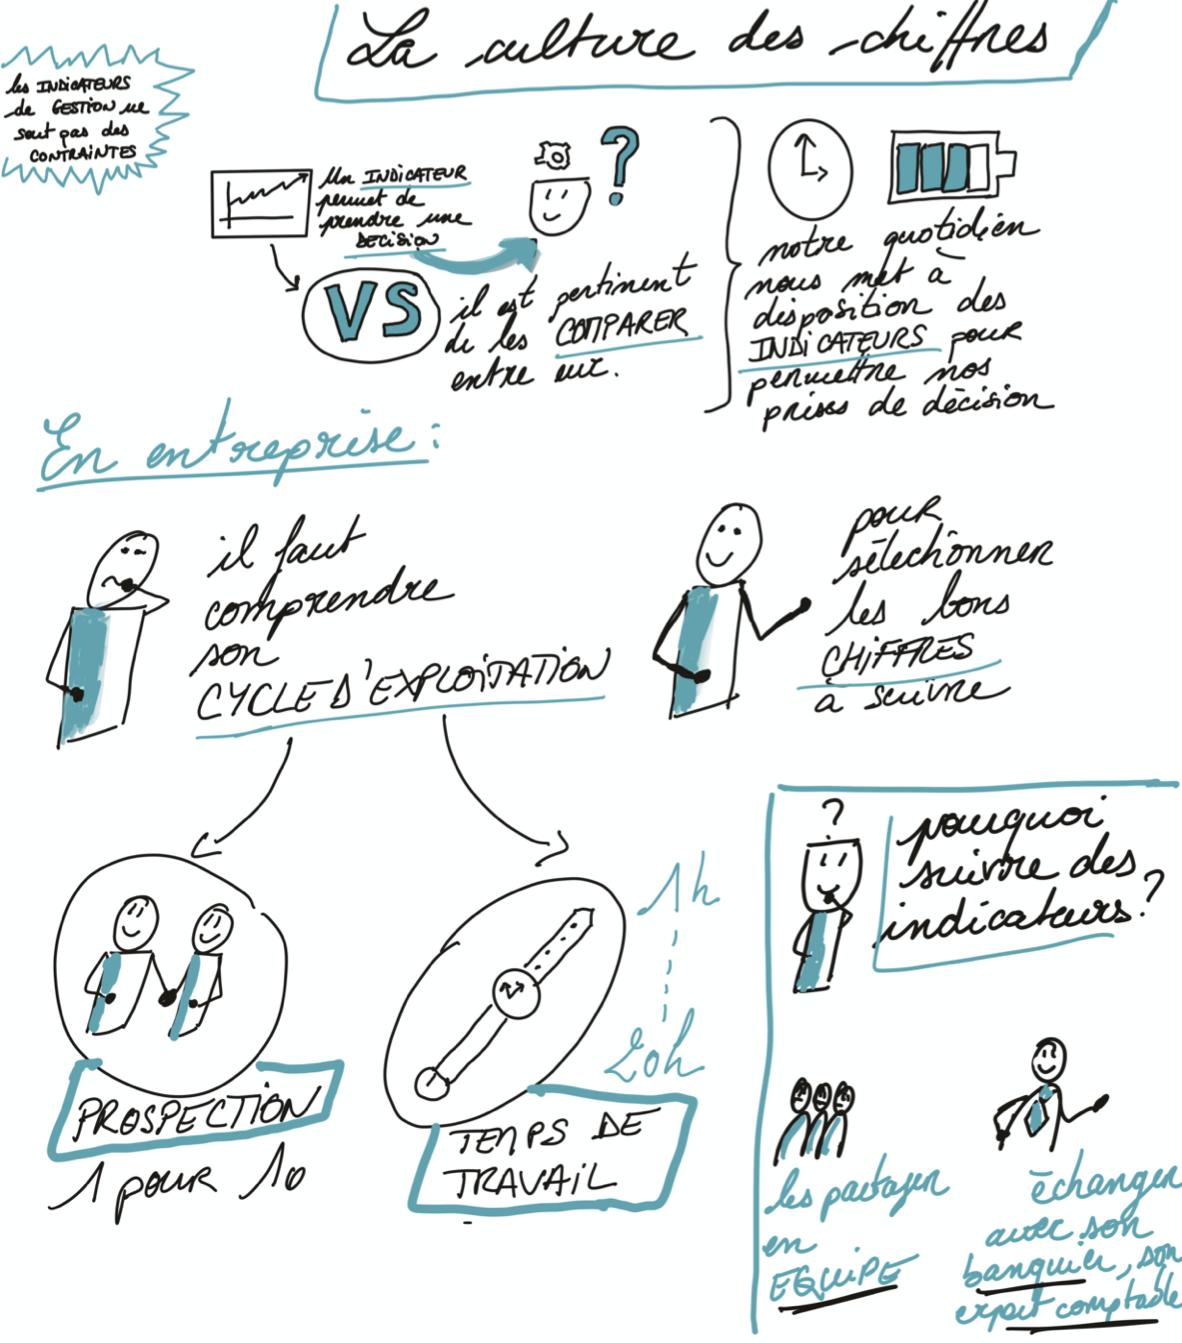 La culture des chiffres
les INDICATEURS
de GESTION ne
sont pas des
CONTRAINTES
Un INDICATEUR
permet de
prendre une
DECISION
?
VS
il est pertinent
de les COMPARER
entre eux.
notre quotidien
nous met à
disposition des
INDICATEURS pour
permettre nos
prises de décision
En entreprise :
il faut
comprendre
son
CYCLE D'EXPLOITATION
pour
sélectionner
les bons
CHIFFRES
à suivre
PROSPECTION
1 pour 10
1h
20h
TEMPS DE
TRAVAIL
?
pourquoi
suivre des
indicateurs ?
les partager
en
EQUIPE
échanger
avec son
banquier, son
expert comptable